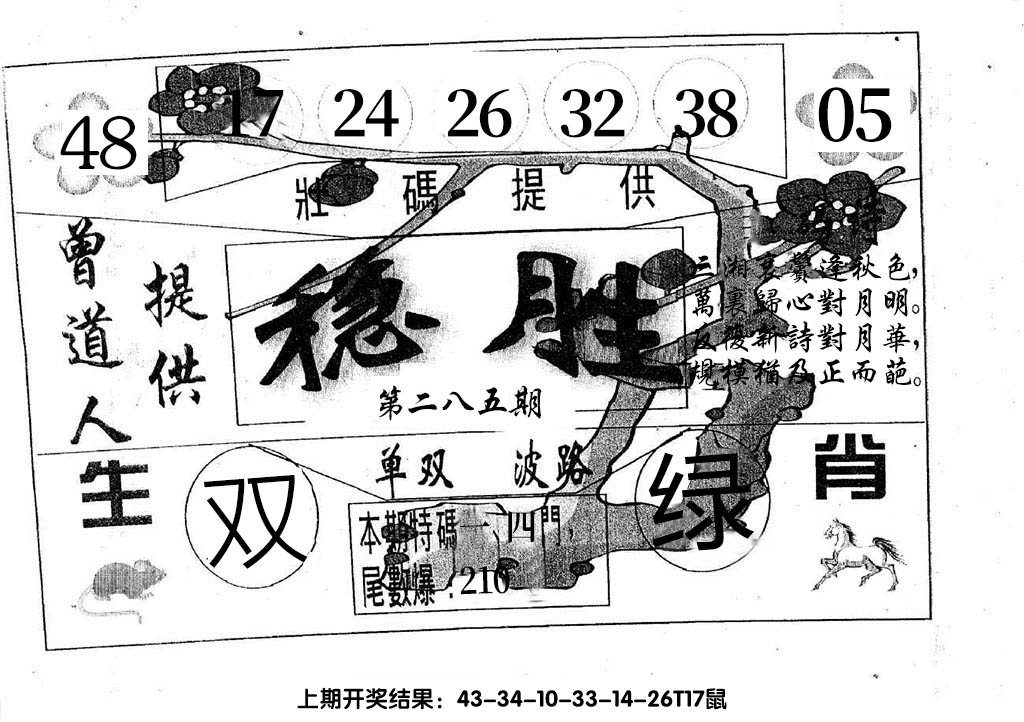 48 17 24 26 32 38 05
壯碼提供
曾道人
提供
稳胜
三湘衰鬢逢秋色,
萬裏歸心對月明。
反復新詩對月華,
規模猶及正而葩。
第二八五期
单双 波路
生
双
绿
肖
本期特碼一、四門,
尾數爆:210
上期开奖结果：43-34-10-33-14-26T17鼠